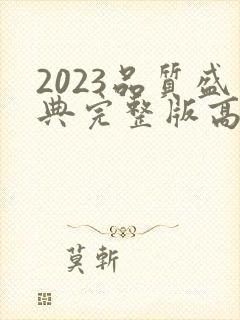 2023品質盛
典完整版高
莫斬